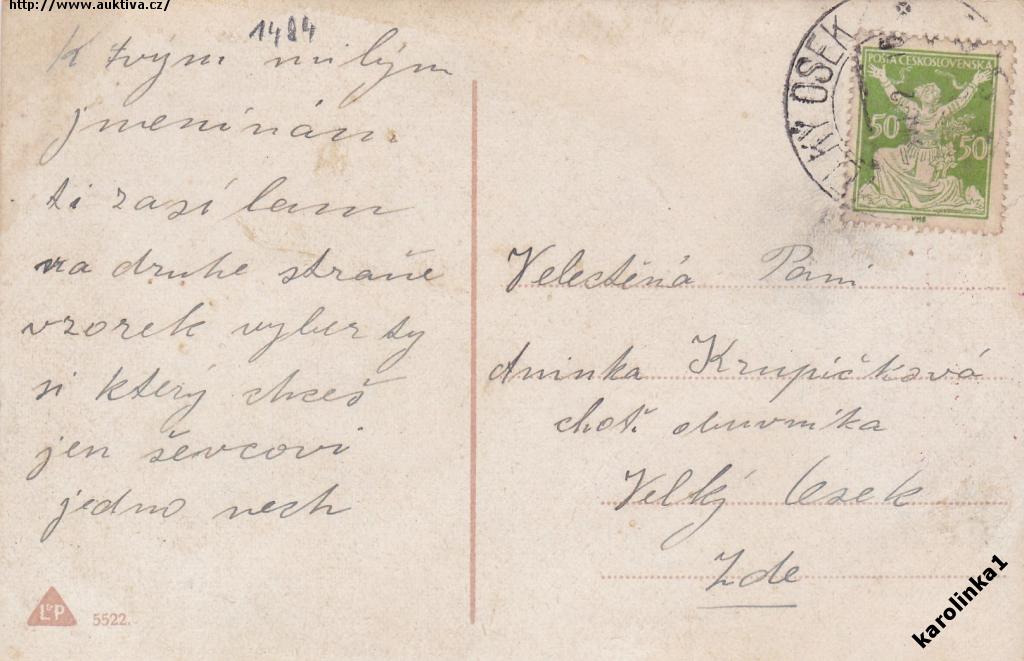 http://www.auktiva.cz/
1484
K tvým milým
jmeninám
ti zasílam
na druhe straňe
vzorek vyber ty
si který chceš
jen ševcovi
jedno nech
LP
5522.
LKÝ OSEK
POŠTA ČESKOSLOVENSKÁ
50
50
Velectěná Paní
Aninka Krupičková
choť. obuvníka
Velký Osek
Zde
karolinka1